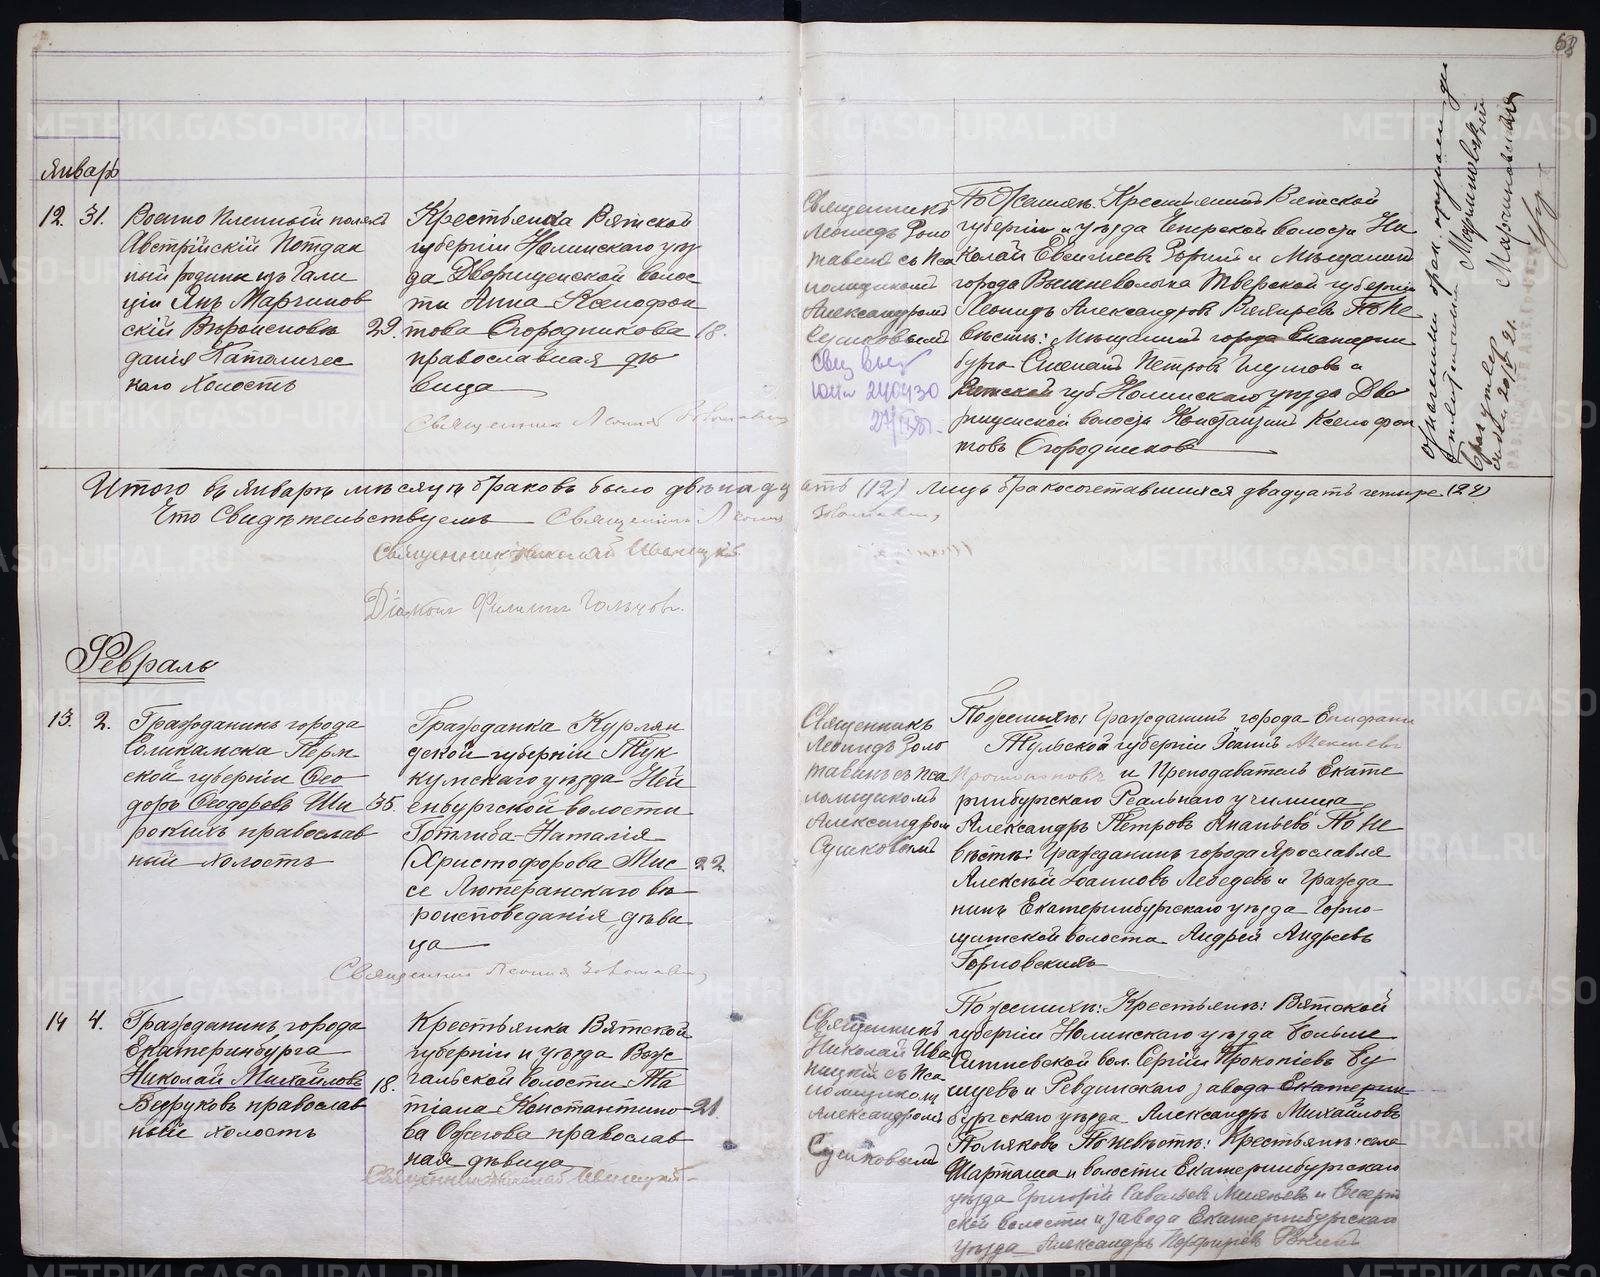 68
Январь
12. 31. Военно Пленный поляк
Австрійскій Поддан
ный родини изъ Гали
ціи Янъ Марчинов
скій Вѣроисповѣ 29.
данія Католичес
каго Холостъ
Крестьянка Вятской
губерніи Нолинскаго уѣз
да Дворищенской волос
ти Анна Ксенофон
това Огородникова 18.
православная дѣ
вица
Священникъ Леонидъ Золотавинъ
Священникъ
Леонидъ Золо
тавинъ съ Пса
ломщикомъ
Александромъ
Сушковымъ
По Женихѣ: Крестьянинъ Вятской
губерніи и уѣзда волости Ни
колай и Мѣщанинъ
города Вышневолыка Тверской губерніи
Леонидъ Александровъ По Не
вѣстѣ: Мѣщанинъ города Екатерин
бурга Петровъ Шумовъ и
Вятской губ Нолинскаго уѣзда Дво
рищенской волости Константинъ Ксенофон
товъ Огородниковъ
Марчиновскій
Марчиновская
Итого въ Январѣ мѣсяцѣ браковъ было двѣнадц
ать (12) лицъ бракосочетавшихся двадцать четыре (24)
Что Свидѣтельствуемъ Священникъ Леонидъ Золотавинъ
Священникъ Николай Иваницкій
Діаконъ Филиппъ Гольчовъ.
Февраль
13. 2. Гражданинъ города
Соликамска Перм
ской губерніи Ѳео
доръ Ѳеодоровъ Ши 35.
рокихъ православ
ный холостъ
Гражданка Курлян
дской губерніи Тук
кумскаго уѣзда Ней
енбургской волости
Готлиба-Наталія
Христофорова Мис 22
се Лютеранскаго вѣ
роисповеданія дѣви
ца
Священникъ Леонидъ Золотавинъ
Священникъ
Леонидъ Золо
тавинъ съ Пса
ломщикомъ
Александром
Сушковымъ
По женихѣ: Гражданинъ города Епифани
Тульской губерніи Іоаннъ Алексѣевъ
и Преподаватель Екате
ринбургскаго Реальнаго училища
Александръ Петровъ Ананьевъ По Не
вѣстѣ: Гражданинъ города Ярославля
Алексѣй Іоанновъ Лебедевъ и Гражда
нинъ Екатеринбургскаго уѣзда Горно-
щитской волости Андрей Андреевъ
Горновскихъ
14 4. Гражданинъ города
Екатеринбурга
Николай Михайловъ 18.
Ведруковъ православ
ный холостъ
Крестьянка Вятской
губерніи и уѣзда Вож
гальской волости Та
тіана Константино 21
ва Ожегова православ
ная дѣвица
Священникъ Николай Иваницкій
Священникъ
Николай Ива
ницкій съ Пса
ломщикомъ
Александромъ
Сушковымъ
По женихѣ: Крестьянѣ: Вятской
губерніи Нолинскаго уѣзда Больше
Ситневской вол. Сергій Прокопіевъ Бу
шуевъ и Ревдинскаго завода Екатерин
бургскаго уѣзда Александръ Михайловъ
Поляковъ По невѣстѣ: Крестьянѣ: села
Шарташа и волости Екатеринбургскаго
уѣзда Григорій Савельевъ и Сысерт
ской волости и завода Екатеринбургскаго
уѣзда Александръ Порфирьевъ